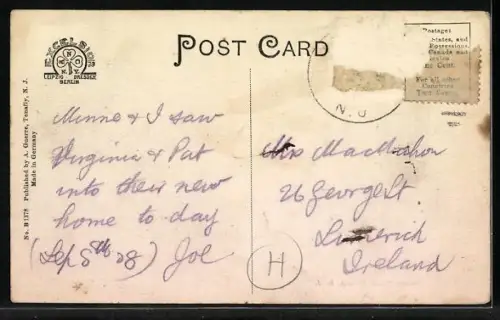 EXCELSIOR
M N O
N.Y.
LEIPZIG DRESDEN
BERLIN
POST CARD
Postage:
States, and
Possessions,
Canada and
Mexico
One Cent.
For all other
Countries
Two Cents.
N. J
No. B 1178 Published by A. Guerra, Tenafly, N. J.
Made in Germany
Minne & I saw
Virginia & Pat
into their new
home to-day
(Sep 8th 28) Joe
Mrs MacMahon
26 George St
Limerick
Ireland
H